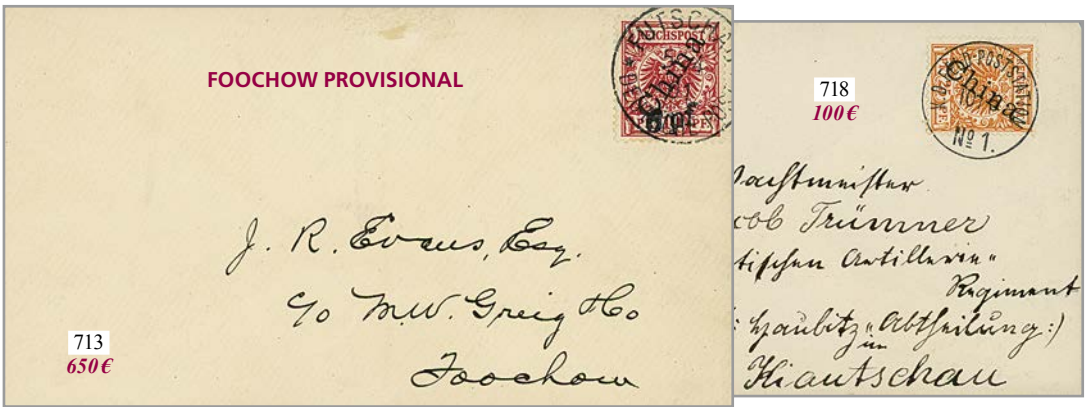 FOOCHOW PROVISIONAL
REICHSPOST
China
J. R. Evans, Esq.
c/o M.W. Greig & Co
Foochow
713
650 €
718
100 €
K.D. FELD-POSTSTATION
China
Nº 1.
Wachtmeister
cob Trümmer
tischen Artillerie-
Regiment
Haubitz-Abtheilung:)
in
Kiautschau